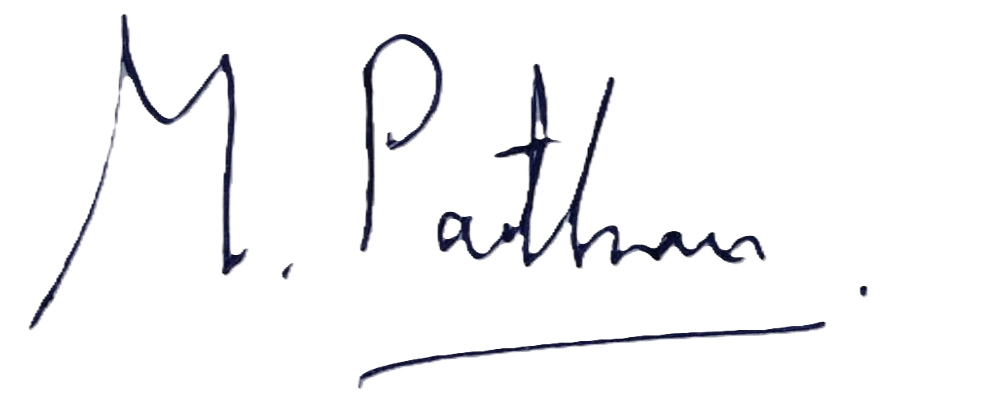 M. Pathan.